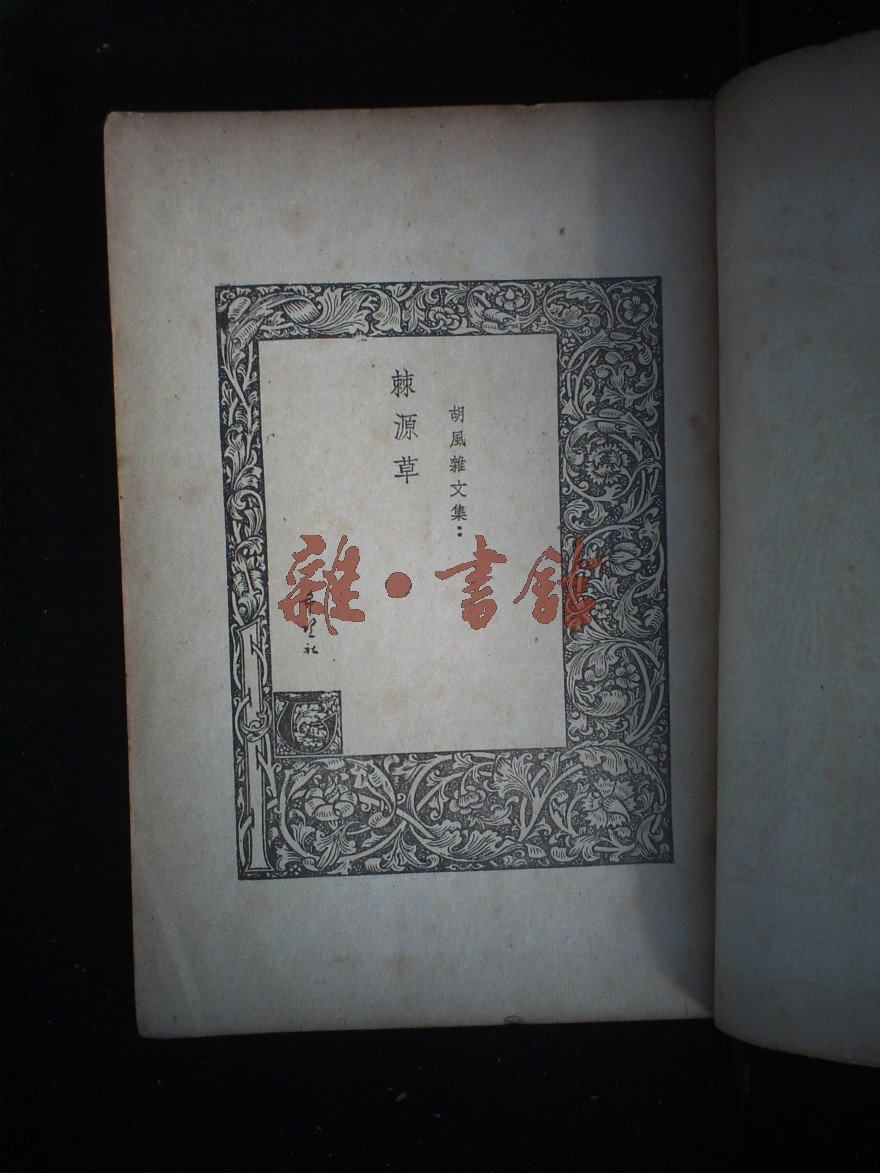 胡風雜文集：
棘源草
希望社
雜·書館